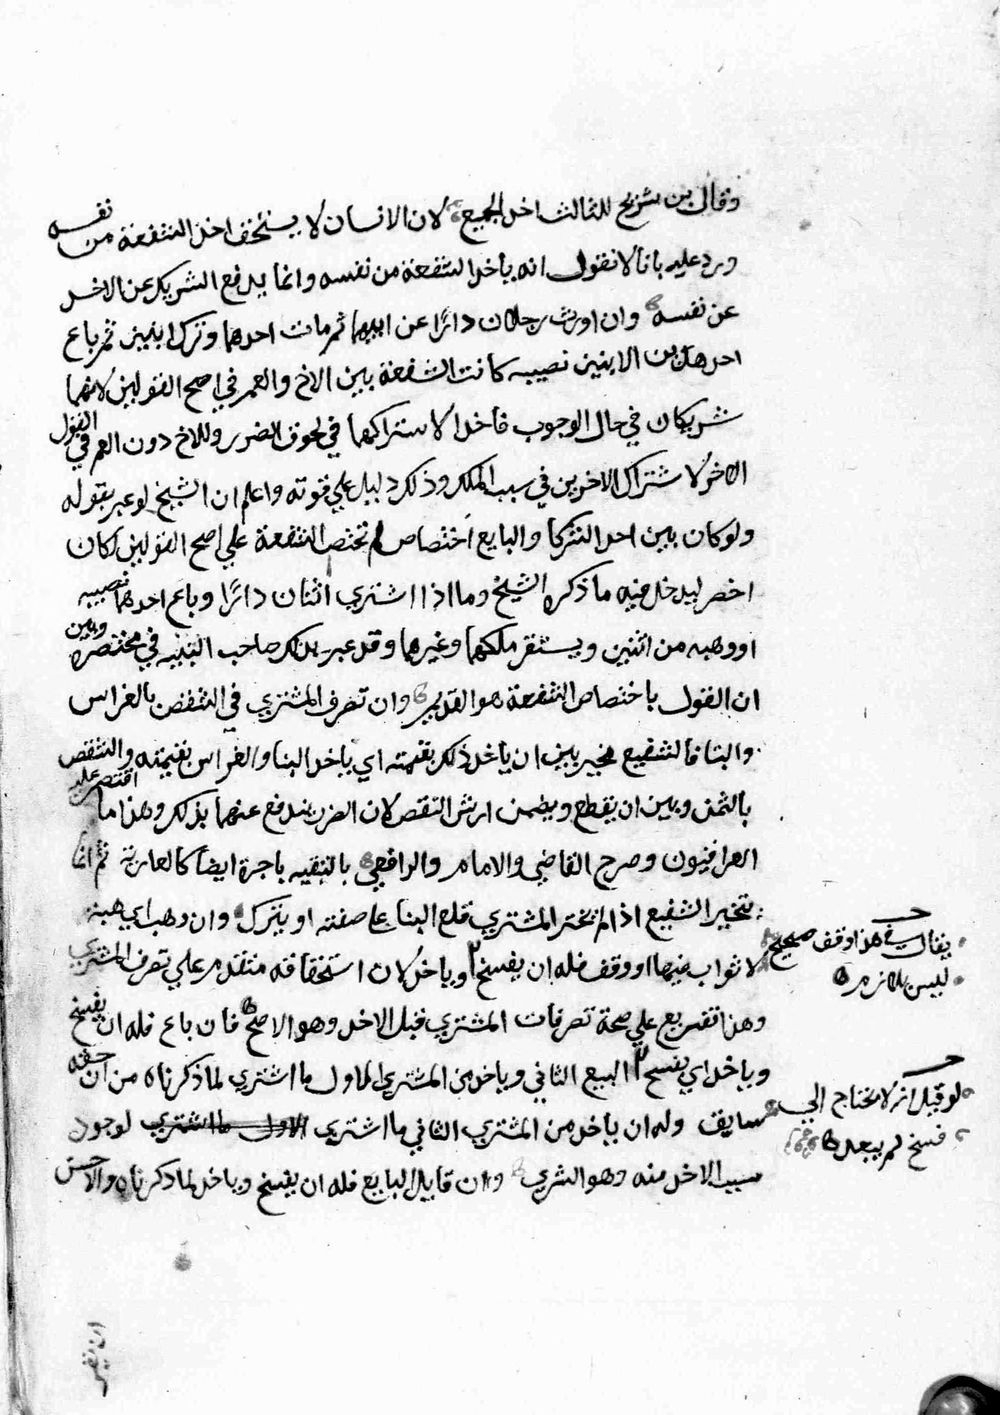 وقال بن سريج للثالث اخذ الجميع لان الانسان لا يستحق اخذ الشفعة من نفسه
ورد عليه بانا لا نقول انه ياخذ الشفعة من نفسه وانما يدفع الشريك عن الاخذ
عن نفسه وان اورث رجلان دارًا عن ابيهما ثم مات احدهما وترك ابنين ثم باع
احد هذين الابنين نصيبه كانت الشفعة بين الاخ والعم في اصح القولين لانهما
شريكان في حال الوجوب فاخذا لاشتراكهما في لحوق الضرر وللاخ دون العم في القول
الاخر لاشتراك الاخوين في سبب الملك وذلك دليل علي قوته واعلم ان الشيخ لو عبر بقوله
ولو كان بين احد الشركا والبايع اختصاص لم تختص الشفعة علي اصح القولين لكان
اخصر ليدخل فيه ما ذكره الشيخ وما اذا اشتري اثنان دارًا وباع احدهما نصيبه
او وهبه من اثنين ويستقر ملكهما وغيرهما وقد عبر بذلك صاحب التنبيه في مختصره وبين
ان القول باختصاص الشفعة هو القديم وان تصرف المشتري في الشقص بالغراس
والبنا فالشفيع مخير بين ان ياخذ ذلك بقيمته اي ياخذ البنا والغراس بقيمته والشقص
بالثمن وبين ان يقطع ويضمن ارش النقص لان الضرر يندفع عنهما بذلك وهذا ما اقتصر عليه
العراقيون وصرح القاضي والامام والرافعي بالتبقيه باجرة ايضا كالعارية ثم انما
يتخير الشفيع اذا لم يختر المشتري قلع البنا علي صفته او يترك وان وهب اي هبة
لا ثواب فيها او وقف فله ان يفسخ وياخذ لان استحقاقه متقدم علي تصرف المشتري
وهذا تفريع علي صحة تصرفات المشتري قبل الاخذ وهو الاصح فان باع فله ان يفسخ
وياخذ اي يفسخ البيع الثاني وياخذ من المشتري الاول ما اشتري لما ذكرناه من ان حقه
سابق وله ان ياخذ من المشتري الثاني ما اشتري الاول ما اشتري لوجود
سبب الاخذ منه وهو الشري وان قايل البايع فله ان يفسخ وياخذ لما ذكرناه والاحسن
يقال في هذا وقف صحيح
ليس بلازم
لو قيل انه لا يحتاج الي
فسخ لم يبعد
ان يقير